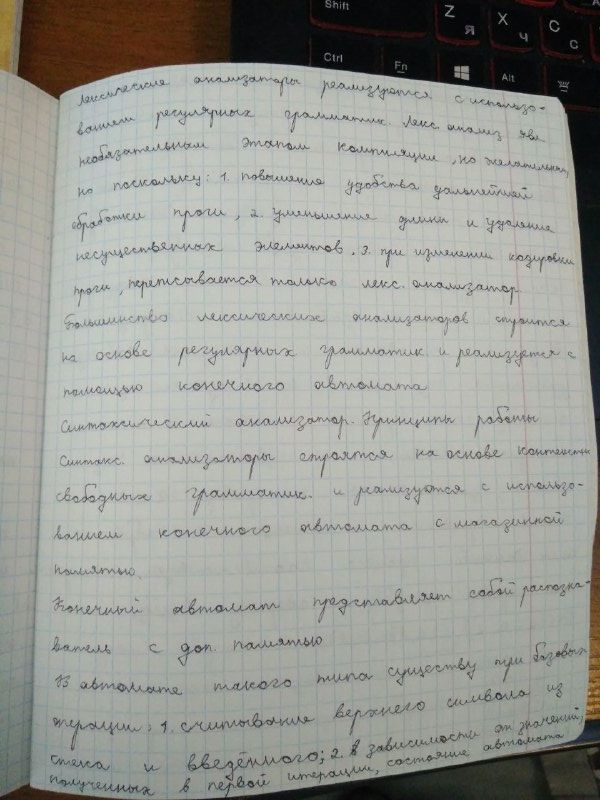 Shift
Z Я
X Ч
C С
Ctrl
Fn
Alt
Лексические анализаторы реализуются с использо-
ванием регулярных грамматик. Лекс. анализ явл
необязательным этапом компиляции, но желательным,
но поскольку: 1. повышение удобства дальнейшей
обработки проги, 2. уменьшение длины и удаление
несущественных элементов, 3. при изменении кодировки
проги, переписывается только лекс. анализатор
Большинство лексических анализаторов строится
на основе регулярных грамматик и реализуется с
помощью конечного автомата
Синтаксический анализатор. Принципы работы
Синтакс. анализаторы строятся на основе контекстно
свободных грамматик. и реализуются с использо-
ванием конечного автомата с магазинной
памятью.
Конечный автомат представляет собой распозна-
ватель с доп. памятью
В автомате такого типа существу три базовых
операции: 1. считывание верхнего символа из
стека и введённого; 2. в зависимости от значений,
полученных в первой итерации, состояние автомата